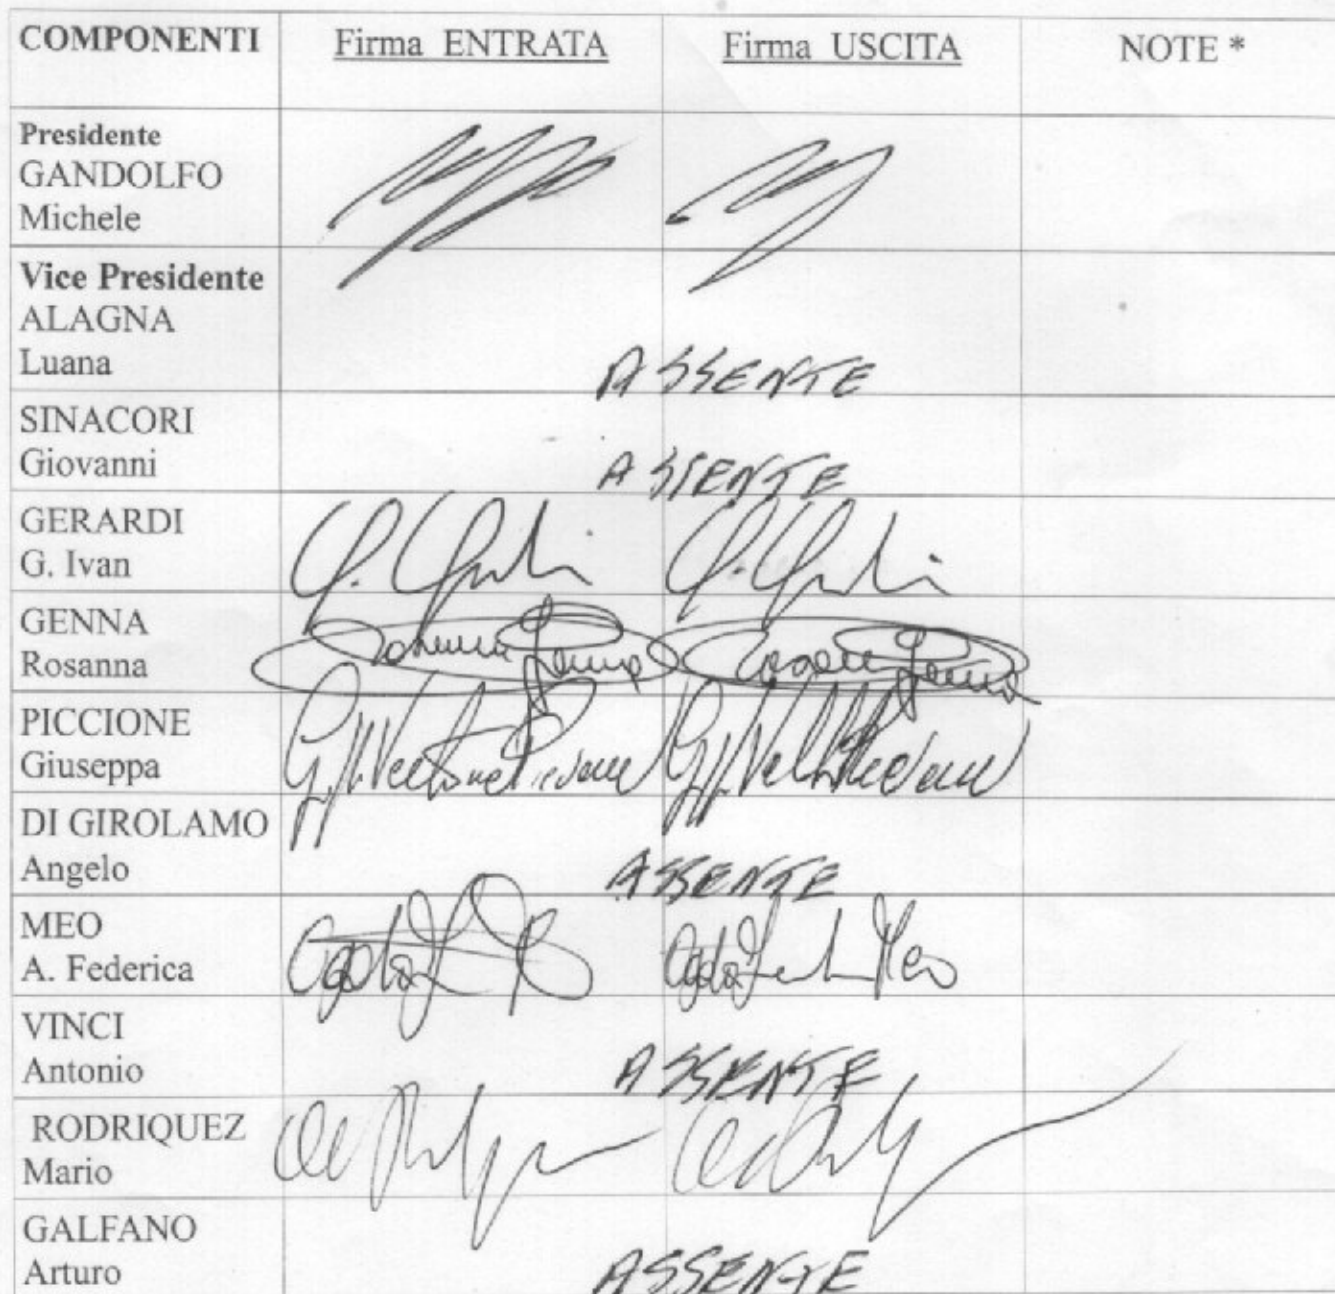 COMPONENTI Firma ENTRATA Firma USCITA NOTE *
Presidente
GANDOLFO
Michele
Vice Presidente
ALAGNA
Luana ASSENTE
SINACORI
Giovanni ASSENTE
GERARDI
G. Ivan
GENNA
Rosanna
PICCIONE
Giuseppa
DI GIROLAMO
Angelo ASSENTE
MEO
A. Federica
VINCI
Antonio ASSENTE
RODRIQUEZ
Mario
GALFANO
Arturo ASSENTE